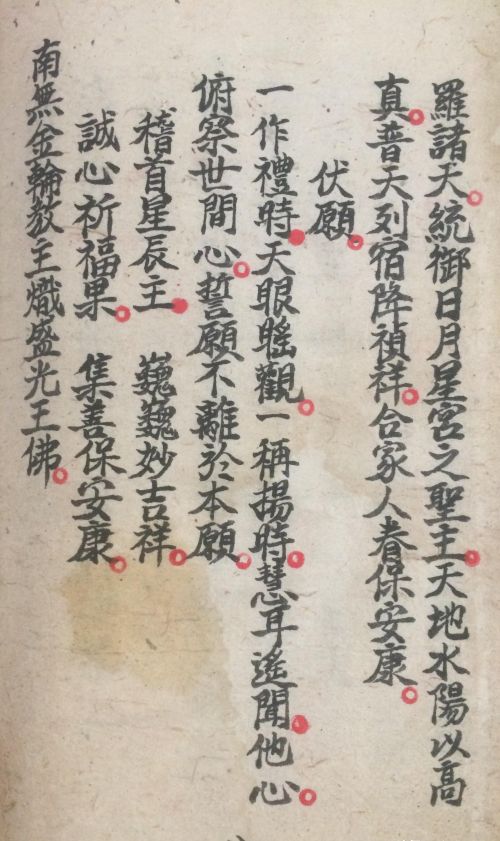 羅諸天。統御日月星宮之聖主。天地水陽以高
真。普天列宿降禎祥。合家人眷保安康。
伏願。
一作禮時。天眼遙觀。一稱揚時。慧耳遙聞。他心。
俯察世間心。誓願不離於本願。
稽首星辰主。 巍巍妙吉祥。
誠心祈福果。 集善保安康。
南無金輪教主熾盛光王佛。